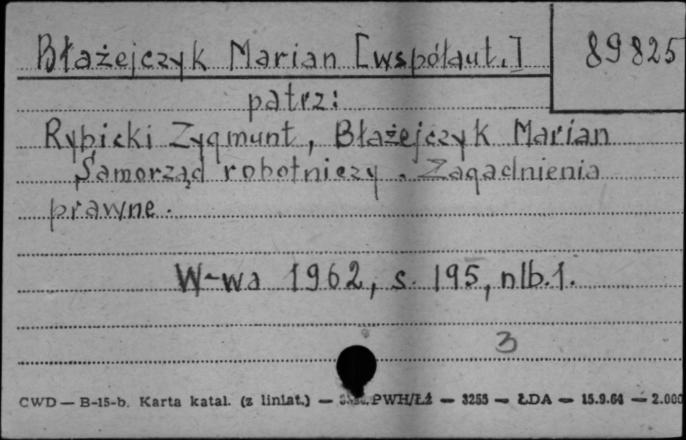 Błażejczyk Marian [współaut.] 89825
patrz:
Rybicki Zygmunt, Błażejczyk Marian
Samorząd robotniczy. Zagadnienia
prawne.
W-wa 1962, s. 195, nlb.1.
3
CWD — B-15-b. Karta katal. (z liniat.) — PWH/Łź — 3255 — ŁDA — 15.9.64 — 2.000